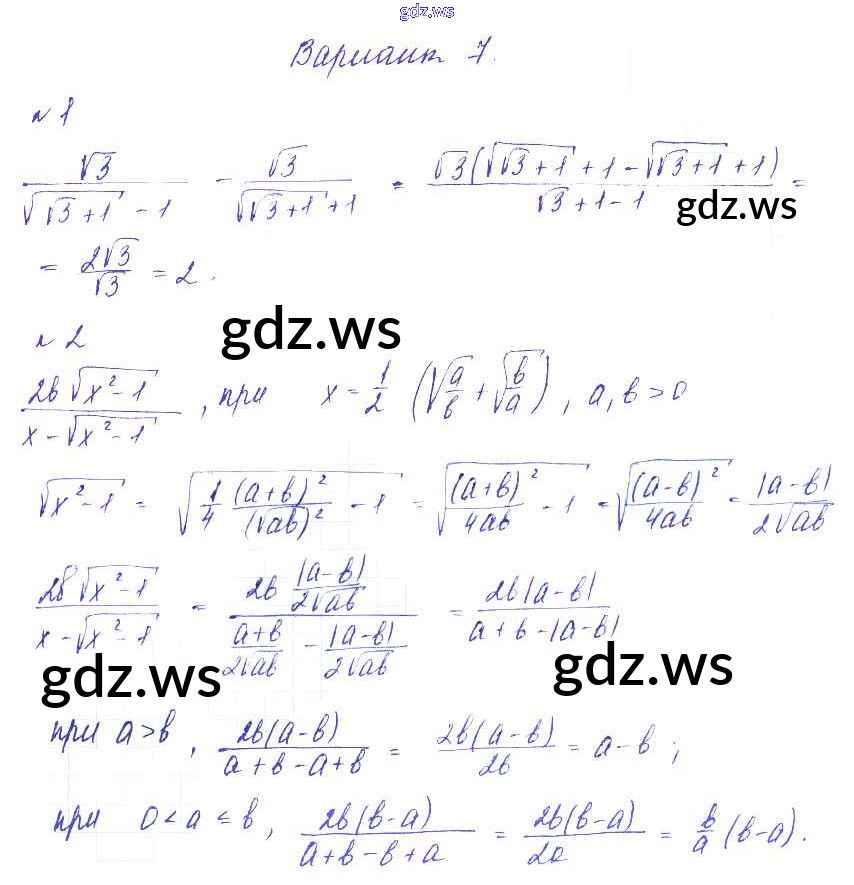 gdz.ws
Вариант 7.
№ 1
√3/(√(√3+1) - 1) - √3/(√(√3+1) + 1) = √3(√(√3+1) + 1 - √(√3+1) + 1)/(√3+1-1) =
gdz.ws
= 2√3/√3 = 2.
№ 2
gdz.ws
2b√(x²-1)/(x-√(x²-1)), при x = 1/2 (√(a/b) + √(b/a)), a, b > 0
√(x²-1) = √(1/4 (a+b)²/(√ab)² - 1) = √((a+b)²/4ab - 1) = √((a-b)²/4ab) = |a-b|/2√ab
2b√(x²-1)/(x-√(x²-1)) = (2b |a-b|/2√ab)/((a+b)/2√ab - |a-b|/2√ab) = 2b|a-b|/(a+b-|a-b|)
gdz.ws gdz.ws
при a>b, 2b(a-b)/(a+b-a+b) = 2b(a-b)/2b = a-b;
при 0<a≤b, 2b(b-a)/(a+b-b+a) = 2b(b-a)/2a = b/a (b-a).